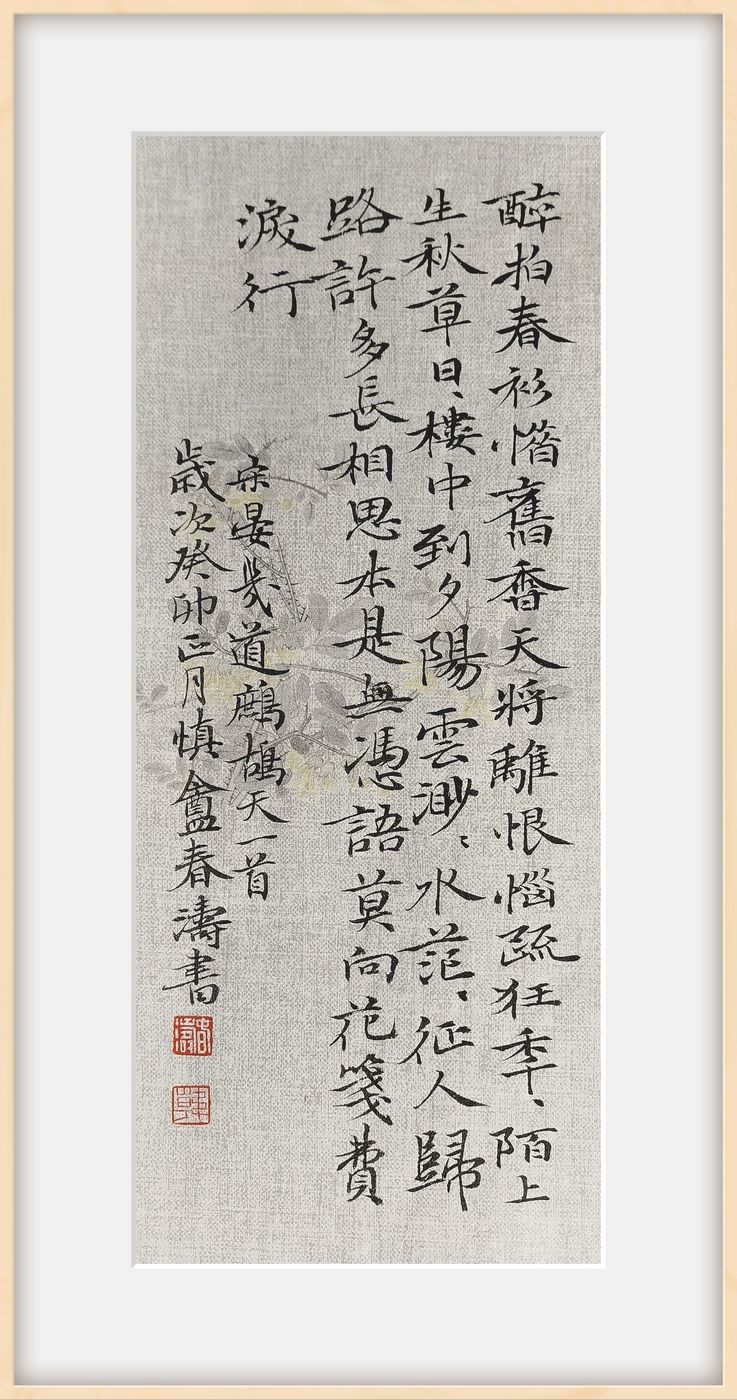 醉拍春衫惜舊香天將離恨惱疏狂秊〻陌上
生秋草日〻樓中到夕陽雲渺〻水茫〻征人歸
路許多長相思本是無憑語莫向花箋費
淚行
宋晏幾道鷓鴣天一首
歲次癸卯正月慎盦春濤書